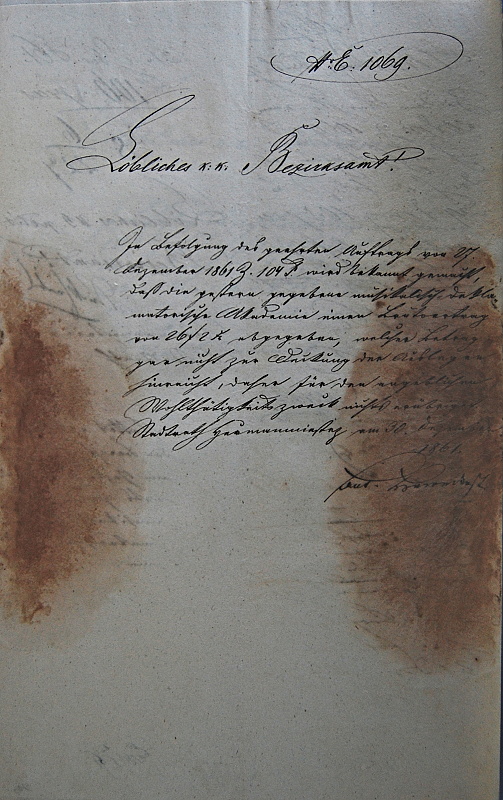 Nr. E. 1069.
Löbliches k. k. Bezirksamt!
In Befolgung des geehrten Auftrags vom 27
Dezember 1861 Z. wird bekannt gemacht
daß die gestern gegebene musikalisch-dekla-
matorische Akademie einen Bruttoertrag
von 26 f 2 x abgegeben, welcher Betrag
gar nicht zur Deckung der
hinreicht, daher für den angeblichen
Wohlthätigkeitszweck nichts erübrigt.
Stadtrath Hermannmiestez am 30. Dezember
1861.